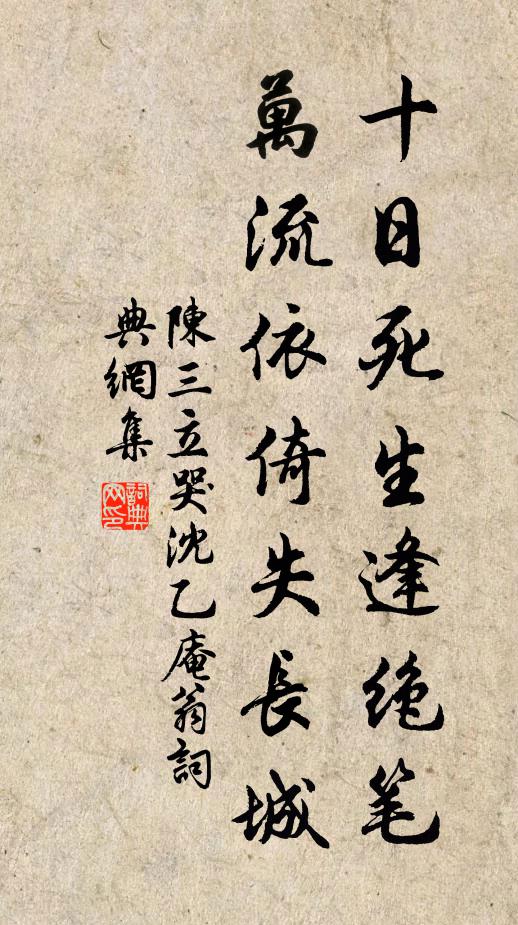 十日死生逢绝笔
萬流依倚失長城
陳三立哭沈乙庵翁詞
典網集
詞典網印